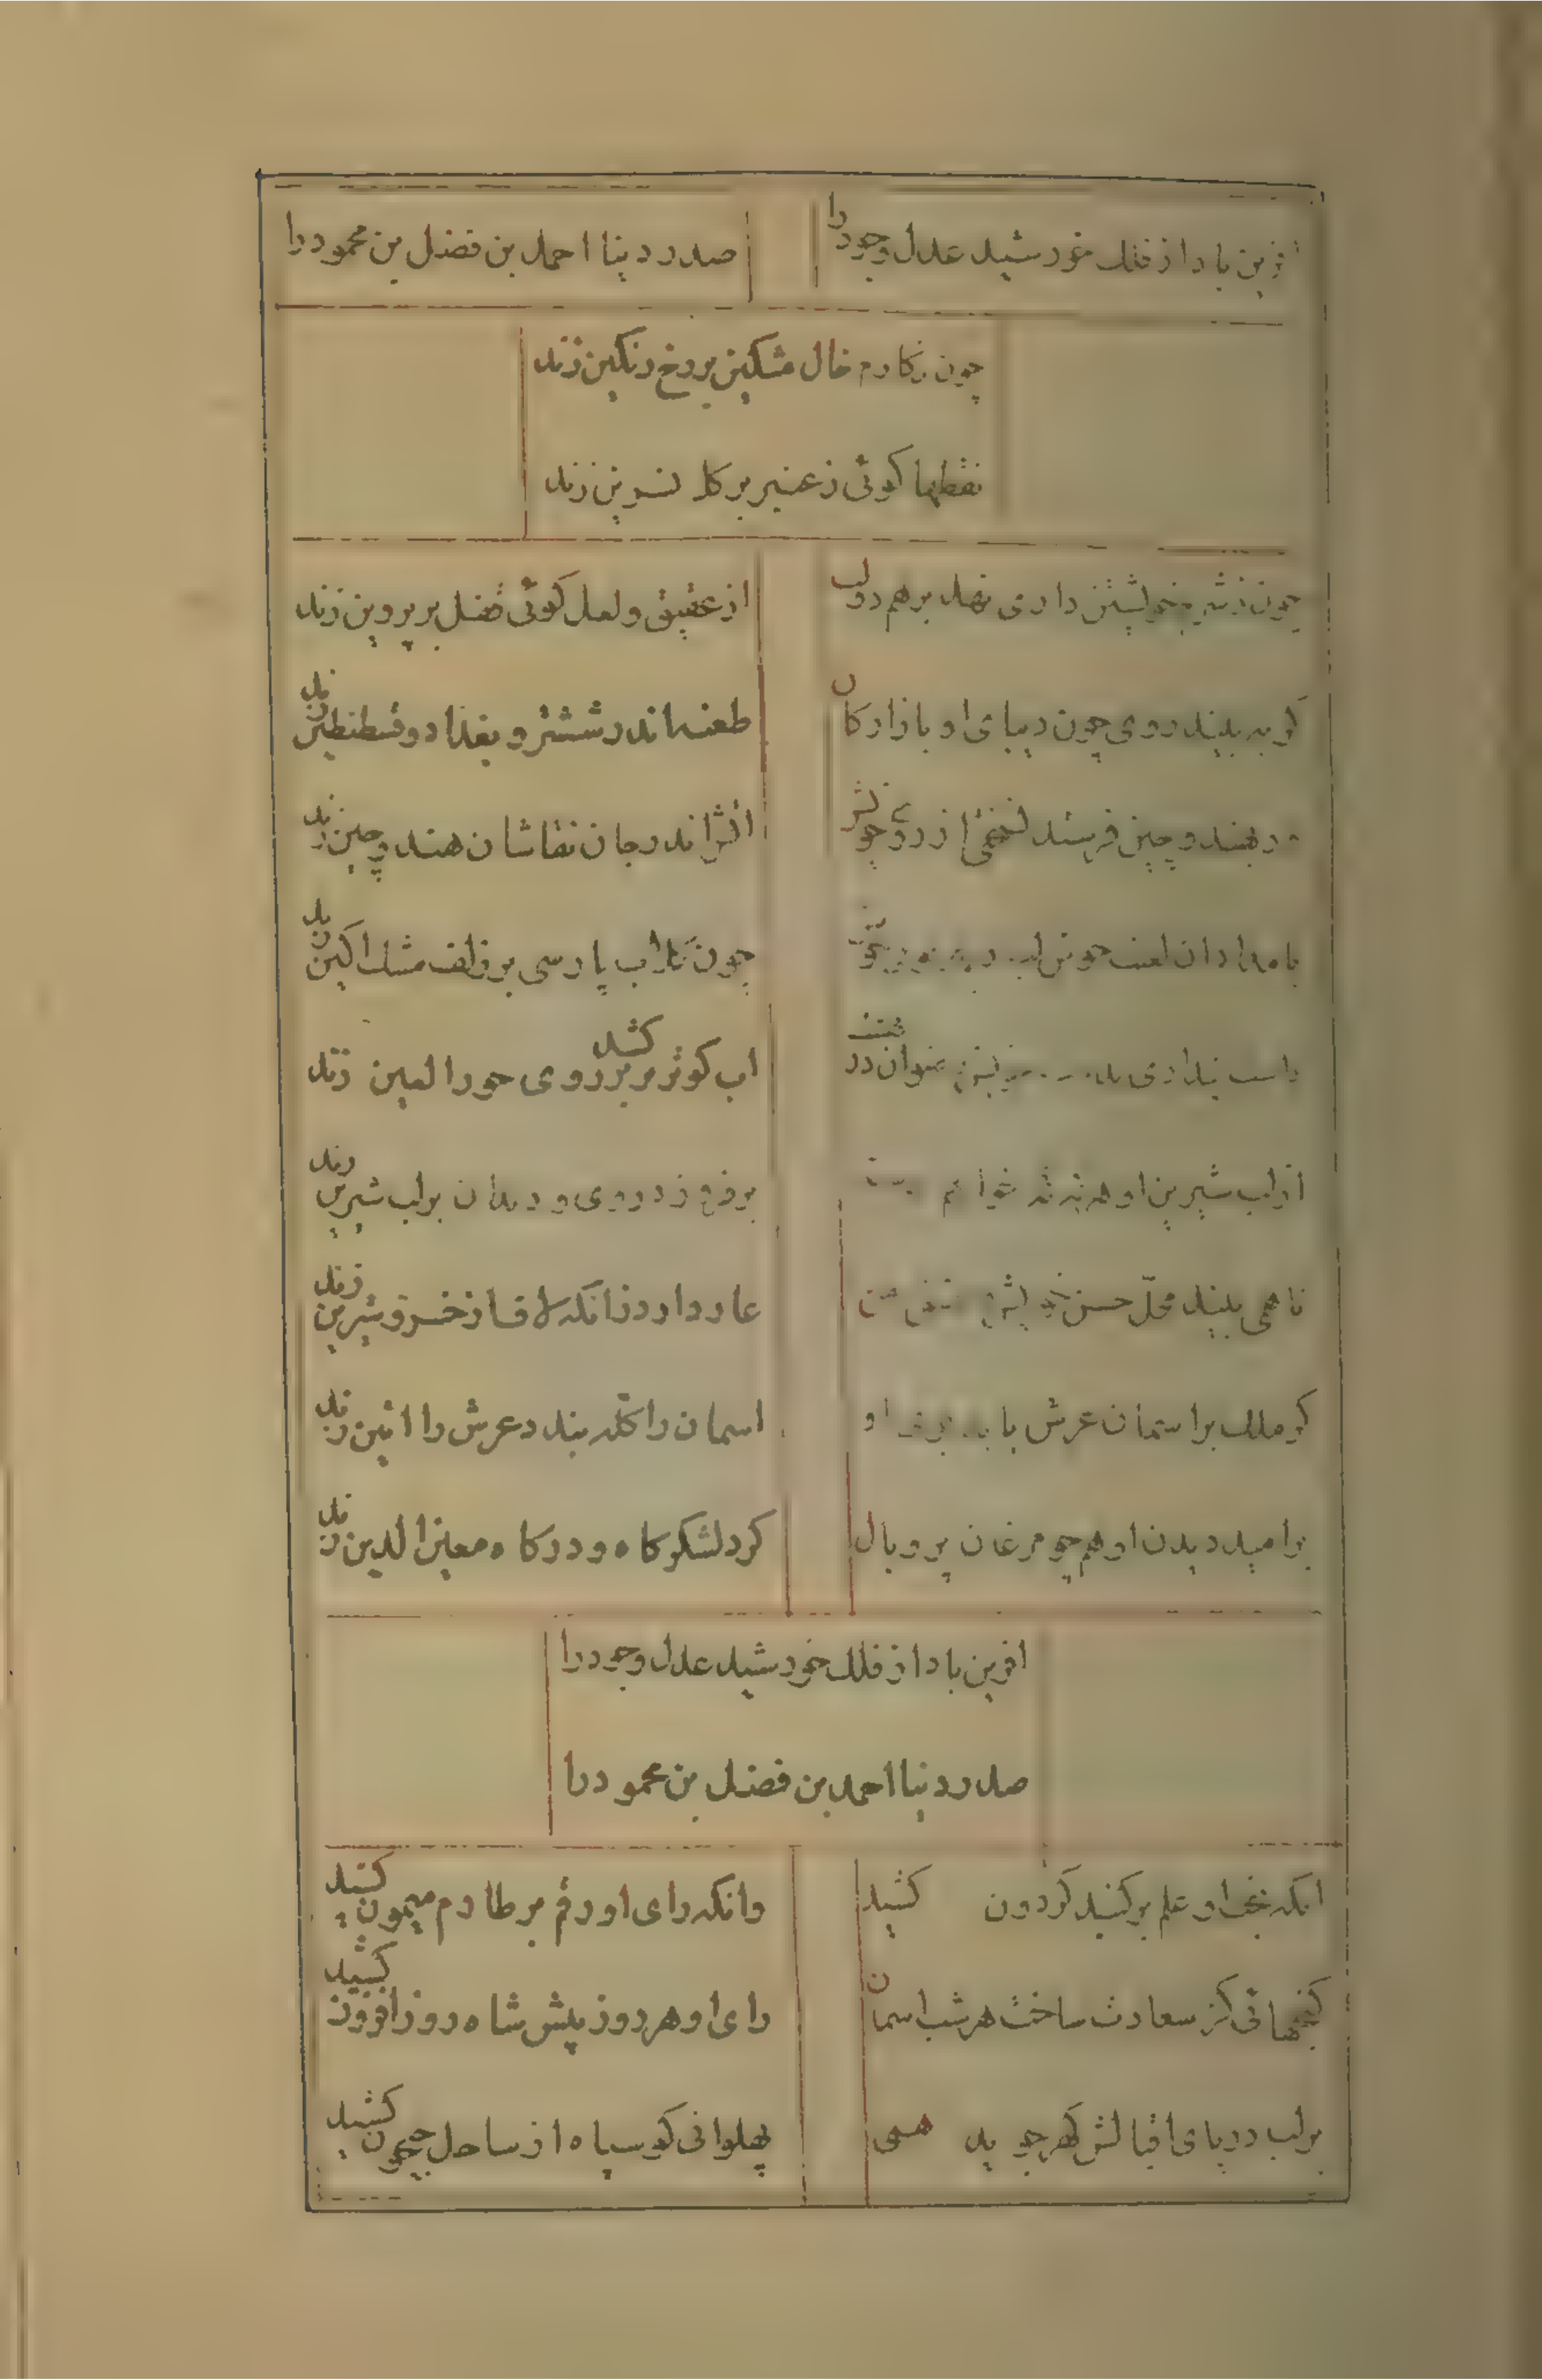 افرین بادا از فلک خورشید عدل وجود را
صدر دنیا احمد بن فضل بن محمود را
چون نکارم خال مشکین بر رخ رنکین زند
نقطها کوئی ز عنبر بر کل نسرین زند
چون ز شرم خویشتن داری نهد بر هم دو لب
از عقیق و لعل کوئی قفل بر پروین زند
کر به بیند روی چون دیبای او بازارکان
طعنه اندر ششتر و بغداد و قسطنطین زند
در هند و چین فرستد نسختی از روی خویش
اتش اندر جان نقاشان هند و چین زند
بامدادان لعبت
چون تاب پارسی بر زلف مشک اکین زند
راست پنداری
اب کوثر بر روی حور العین زند
از لب شیرین او هر
بر فروزد روی و دندان بر لب شیرین زند
تا همی بیند محل حسن
عار دارد زانکه لاف از خسرو شیرین زند
کر ملک بر استمان عرش یا
اسمان را کله بندد عرش را ائین زند
بر امید دیدن او همچو مرغان پر و بال
کرد لشکرکاه و درکاه معین الدین زند
افرین بادا از فلک خورشید عدل وجود را
صدر دنیا احمد بن فضل بن محمود را
انکه بخت او علم بر کنبد کردون کشید
وانکه رای او رقم بر طارم میمون کشید
کنجهائی کز سعادت ساخت هر شب اسمان
رای او هر روز پیش شاه روز افزون کشید
بر لب دریای اقبالش کهر جوید همی
پهلوانی کو سپاه از ساحل جیحون کشید